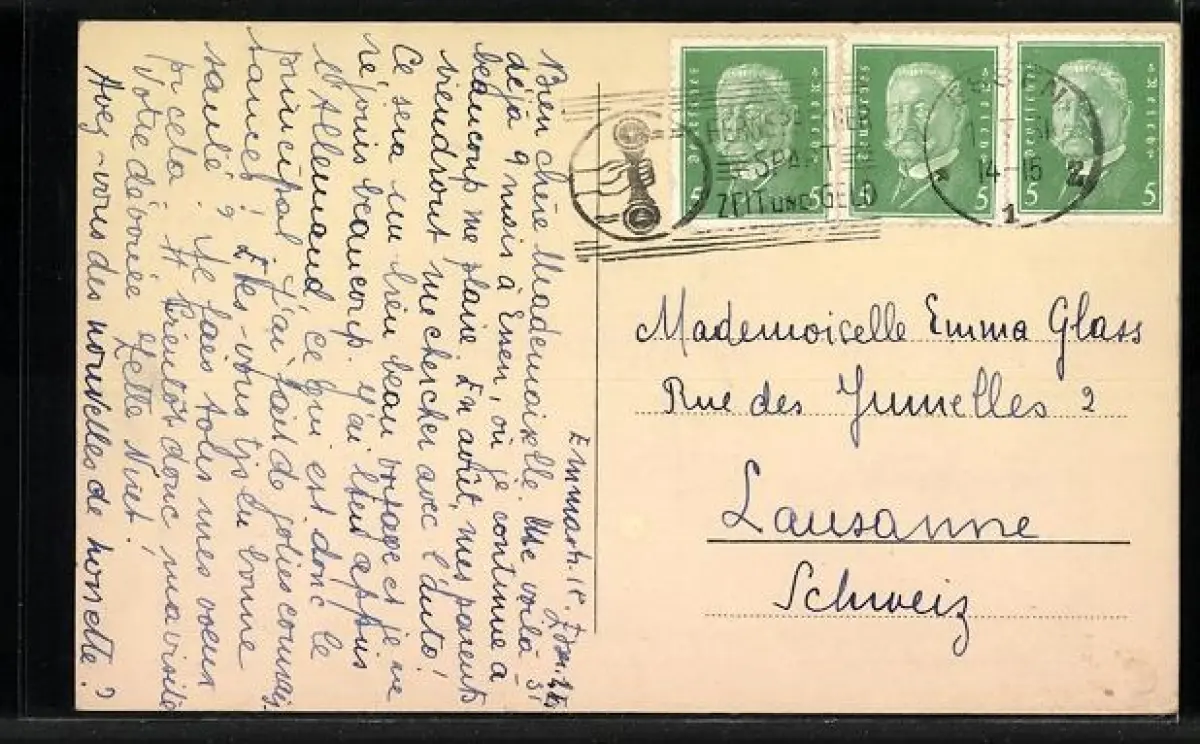 Bien chère Mademoiselle. Me voilà
déjà 9 mois à Essen, où je continue à
beaucoup me plaire. En avril, mes parents
viendront me chercher avec l'auto!
Ce sera un bien beau voyage et je me
réjouis beaucoup. J'ai bien appris
l'Allemand, ce qui est donc le
principal. J'ai fait de jolies connais-
sances! Êtes-vous tjs en bonne
santé? Je fais tous mes voeux
pr cela. A bientôt donc, ma visite
Votre dévouée
Avez-vous des nouvelles de Nonette?
31
Mademoiselle Emma Glass
Rue des Jumelles 2
Lausanne
Schweiz
Deutsches Reich
5 5
Deutsches Reich
5 5
Deutsches Reich
5 5
SPART
ZEIT UND GELD
ESSEN
14-15
1